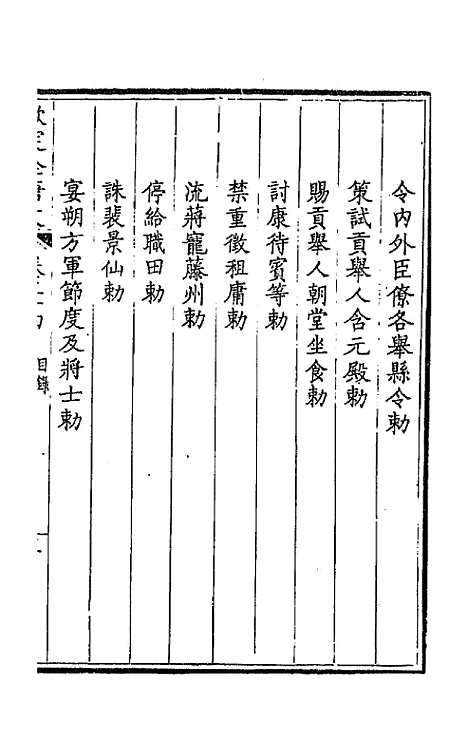 令內外臣僚各舉縣令勅
策試貢舉人含元殿勅
賜貢舉人朝堂坐食勅
討康待賓等勅
禁重徵租庸勅
流蔣寵藤州勅
停給職田勅
誅裴景仙勅
宴朔方軍節度及將士勅
目錄